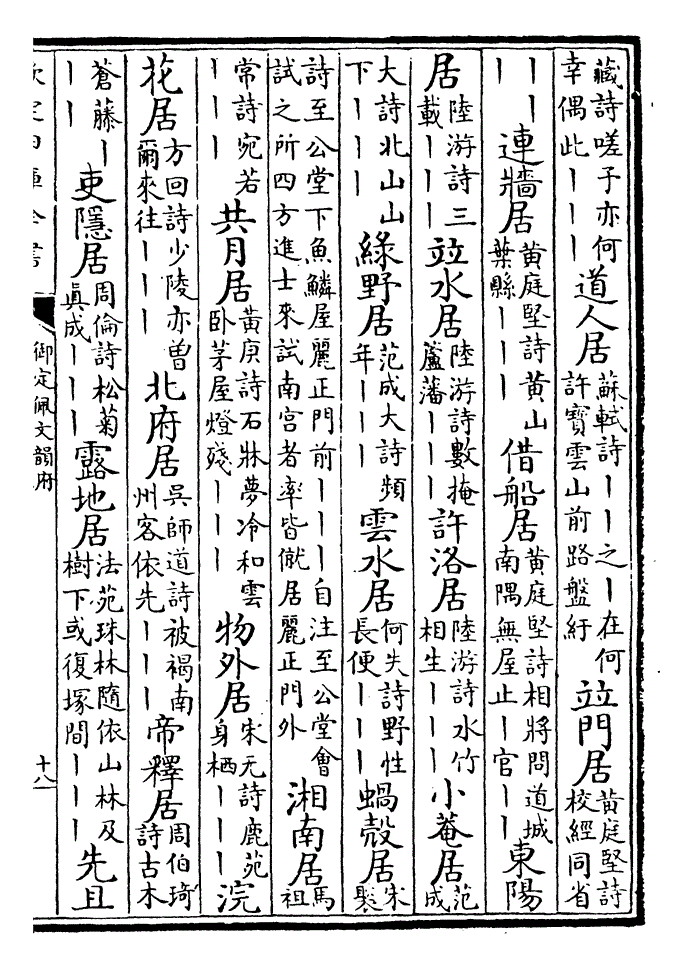 藏詩嗟子亦何幸偶此丨丨丨 道人居 蘇軾詩丨丨之丨在何許寶雲山前路盤紆 竝門居 黄庭堅詩校經同省
丨丨丨 連牆居 黄庭堅詩黄山葉縣丨丨丨 借船居 黄庭堅詩相將問道城南隅無屋止丨官丨丨 東陽
居 陸游詩三載丨丨丨 竝水居 陸游詩數掩蘆藩丨丨丨 許洛居 陸游詩水竹相生丨丨丨 小菴居 范成
大詩北山山下丨丨丨 綠野居 范成大詩頻年丨丨丨 雲水居 何失詩野性長便丨丨丨 蝸殼居 宋褧
詩至公堂下魚鱗屋麗正門前丨丨丨自注至公堂會試之所四方進士來試南宫者率皆僦居麗正門外 湘南居 馬祖
常詩宛若丨丨丨 共月居 黄庚詩石牀夢冷和雲卧茅屋燈殘丨丨丨 物外居 宋无詩鹿苑身栖丨丨丨 浣
花居 方回詩少陵亦曾爾來往丨丨丨 北府居 吳師道詩被褐南州客依先丨丨丨 帝釋居 周伯琦詩古木
蒼藤丨丨丨 吏隱居 周倫詩松菊眞成丨丨丨 露地居 法苑珠林隨依山林及樹下或復塚間丨丨丨 先且
欽定四庫全書 御定佩文韻府 十八